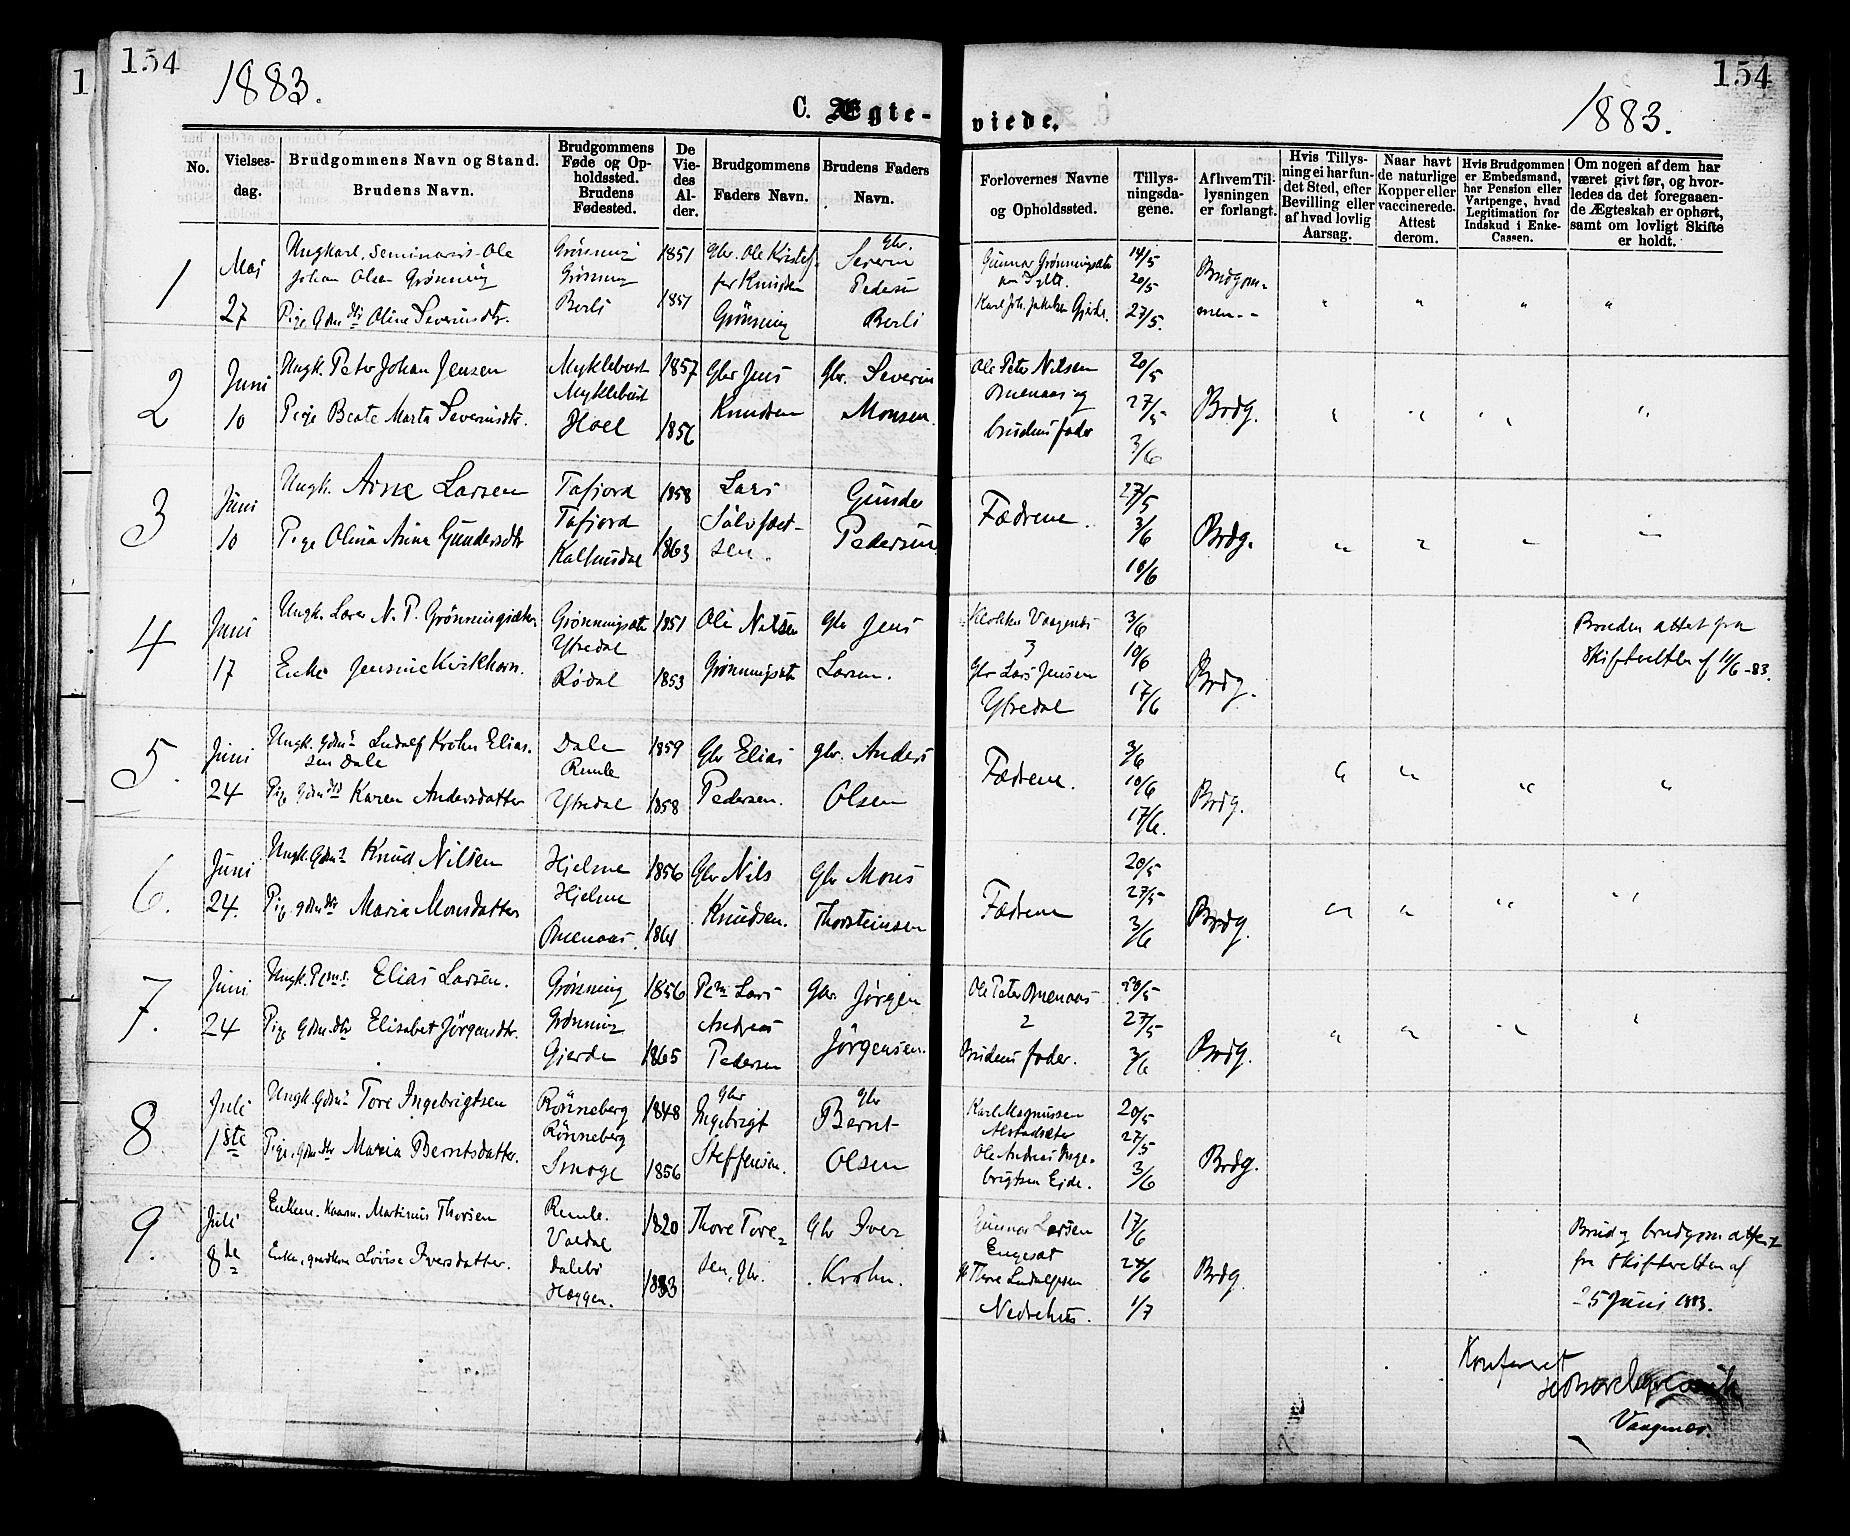 154
1883.
C. Ægte-
viede.
1883.
154
1
No.
Vielses-
dag.
Brudgommens Navn og Stand.
Brudens Navn.
Brudgommens
Føde og Op-
holdssted.
Brudens
Fødested.
De
Vie-
des
Al-
der.
Brudgommens
Faders Navn.
Brudens Faders
Navn.
Forlovernes Navne
og Opholdssted.
Tillys-
ningsda-
gene.
Af hvem Til-
lysningen
er forlangt.
Hvis Tillys-
ning ei har fun-
det Sted, efter
Bevilling eller
af hvad lovlig
Aarsag.
Naar havt
de naturlige
Kopper eller
vaccinerede.
Attest
derom.
Hvis Brudgommen
er Embedsmand,
har Pension eller
Vartpenge, hvad
Legitimation for
Indskud i Enke-
Cassen.
Om nogen af dem har
været givt før, og hvor-
ledes da det foregaaen-
de Ægteskab er ophørt,
samt om lovligt Skifte
er holdt.
1
Mai
27
Ungkarl, Seminarist Ole
Johan Olsen Grønning
Pige Gdm dtr Oline Severinsdtr.
Grønning
Grønning
Berli
1851
1851
Gbr. Ole Kristof-
fer Knudsen
Grønning
Gbr.
Severin
Pedersen
Berli
Gunnar Grønningsæter
Karl Joh. Jakobsen Gjerde.
14/5
20/5
27/5.
Brudgom-
men--
2
Juni
10
Ungk. Peter Johan Jensen
Pige Beate Marta Severinsdtr.
Myklebust
Myklebust
Hoel
1857
1856
Gbr Jens
Knudsen
Gbr. Severin
Monsen.
Ole Peter Nilsen
Buenaas og
brudens fader
20/5
27/5
3/6
Brdg.
3
Juni
10
Ungk. Arne Larsen
Pige Olina Anna Gundersdtr
Tafjord
Tafjord
Kaldhusdal
1858
1863
Lars
Sølvfest-
sen.
Gunder
Pedersen
Fædrene.
27/5
3/6
10/6
Brdg.
4
Juni
17
Ungk. Lærer N. P. Grønningsæter
Enke Jensine Kirkhorn.
Grønningsæter
Ytredal
Rødal
1851
1853
Ole Nilsen
Grønningsæter
Gbr Jens
Larsen.
Klokker Vaagenes
Gbr Lars Jensen
Ytredal
3/6
10/6
17/6
Brdg.
Bruden attest fra
Skifteretten af 11/6 -83.
5.
Juni
24
Ungk. Gdm s Ludolf Krohn Elias-
sen Dale
Pige Gdm dtr Karen Andersdatter
Dale
Remle
Ytredal
1859
1858
Gbr Elias
Pedersen.
Gbr. Anders
Olsen
Fædrene.
3/6
10/6
17/6.
Brdg.
6.
Juni
24.
Ungk. Gdm s Knud Nilsen
Pige gdm dtr Maria Monsdatter
Hjelme
Hjelme
Buenaas.
1856
1861
Gbr Nils
Knudsen.
Gbr Mons
Thorsteinsen
Fædrene
20/5
27/5
3/6
Brdg.
7.
Juni
24
Ungk. Elias Larsen.
Pige Gdm. dtr Elisabet Jørgensdtr.
Grønning
Grønning
Gjerde
1856
1865
Lars
Andreas
Pedersen
Gbr. Jørgen
Jørgensen.
Ole Peter Buenaas
Brudens fader.
20/5
27/5
3/6
Brdg.
8
Juli
1ste
Ungk. Gdm s Tore Ingebrigtsen
Pige, Gdm dtr Maria Berntsdatter.
Rønneberg
Rønneberg
Smoge
1848
1856
Gbr
Ingebrigt
Steffensen.
Gbr
Bernt
Olsen
Karl Magnussen
Alstadsæter
Ole Andreas Inge-
brigtsen Eide.
20/5
27/5
3/6
Brdg.
9.
Juli
8de
Enkem. Kaarm. Martinus Thorsen
Enke, Lovise Iversdatter.
Remle.
Valdal
Dalebø
Hæggen.
1820
1833
Thore Tore-
sen, Gbr.
Gbr Iver
Krohn.
Gunnar Larsen
Engeset
Thore Ludolfsen
Nedrehus.
17/6
24/6
1/7
Brdg.
Brud og brudgom attest
fra Skifteretten af
25 Juni 1883.
Konfereret
Vaagenes.